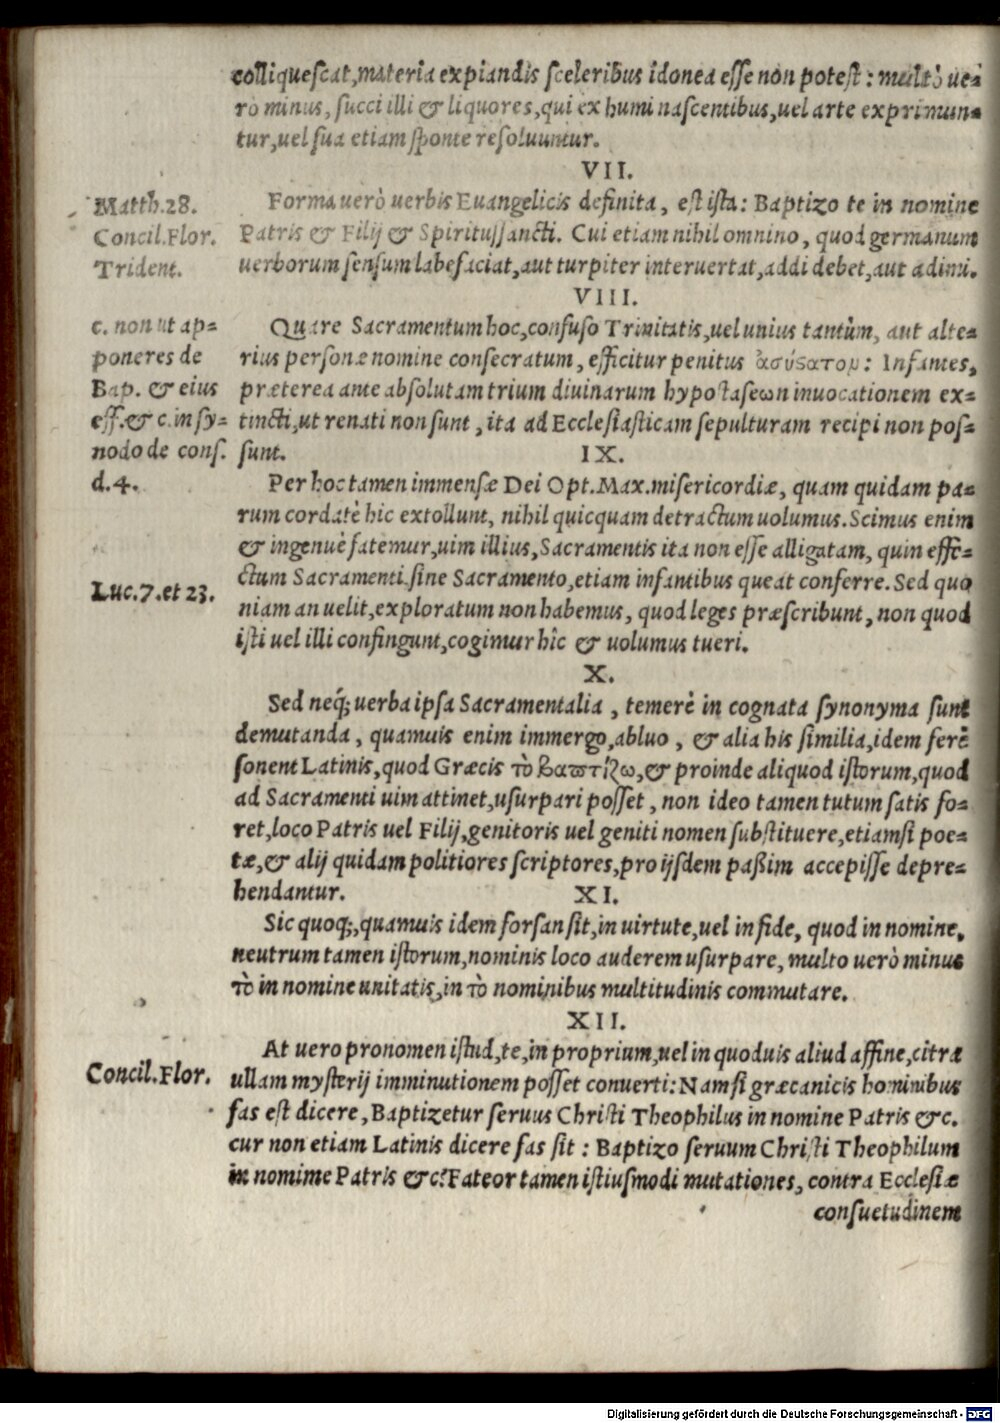 colliquescat, materia expiandis sceleribus idonea esse non potest: multò ue-
rò minus, succi illi & liquores, qui ex humi nascentibus, uel arte exprimun-
tur, uel sua etiam sponte resoluuntur.
VII.
Matth. 28.
Concil. Flor.
Trident.
Forma uerò uerbis Euangelicis definita, est ista: Baptizo te in nomine
Patris & Filij & Spiritussancti. Cui etiam nihil omnino, quod germanum
uerborum sensum labefaciat, aut turpiter interuertat, addi debet, aut adimi.
VIII.
c. non ut ap-
poneres de
Bap. & eius
eff. & c. in sy-
nodo de cons.
d. 4.
Quare Sacramentum hoc, confuso Trinitatis, uel unius tantùm, aut alte-
rius personæ nomine consecratum, efficitur penitus ἀσύςατον: Infantes,
præterea ante absolutam trium diuinarum hypostaseωn inuocationem ex-
tincti, ut renati non sunt, ita ad Ecclesiasticam sepulturam recipi non pos-
sunt.
IX.
Luc. 7. et 23.
Per hoc tamen immensæ Dei Opt. Max. misericordiæ, quam quidam pa-
rum cordatè hic extollunt, nihil quicquam detractum uolumus. Scimus enim
& ingenuè fatemur, uim illius, Sacramentis ita non esse alligatam, quin effe-
ctum Sacramenti sine Sacramento, etiam infantibus queat conferre. Sed quo
niam an uelit, exploratum non habemus, quod leges præscribunt, non quod
isti uel illi confingunt, cogimur hîc & uolumus tueri.
X.
Sed neq́; uerba ipsa Sacramentalia, temerè in cognata synonyma sunt
demutanda, quamuis enim immergo, abluo, & alia his similia, idem ferè
sonent Latinis, quod Græcis τὸ βαπτίζω, & proinde aliquod istorum, quod
ad Sacramenti uim attinet, usurpari posset, non ideo tamen tutum satis fo-
ret, loco Patris uel Filij, genitoris uel geniti nomen substituere, etiamsi poe-
tæ, & alij quidam politiores scriptores, pro ijsdem paßim accepisse depre-
hendantur.
XI.
Sic quoq;, quamuis idem forsan sit, in uirtute, uel in fide, quod in nomine,
neutrum tamen istorum, nominis loco auderem usurpare, multo uerò minus
τὸ in nomine unitatis, in τὸ nominibus multitudinis commutare.
XII.
Concil. Flor.
At uero pronomen istud, te, in proprium, uel in quoduis aliud affine, citra
ullam mysterij imminutionem posset conuerti: Nam si græcanicis hominibus
fas est dicere, Baptizetur seruus Christi Theophilus in nomine Patris &c.
cur non etiam Latinis dicere fas sit: Baptizo seruum Christi Theophilum
in nomime Patris &c? Fateor tamen istiusmodi mutationes, contra Ecclesiæ
consuetudinem
Digitalisierung gefördert durch die Deutsche Forschungsgemeinschaft - DFG